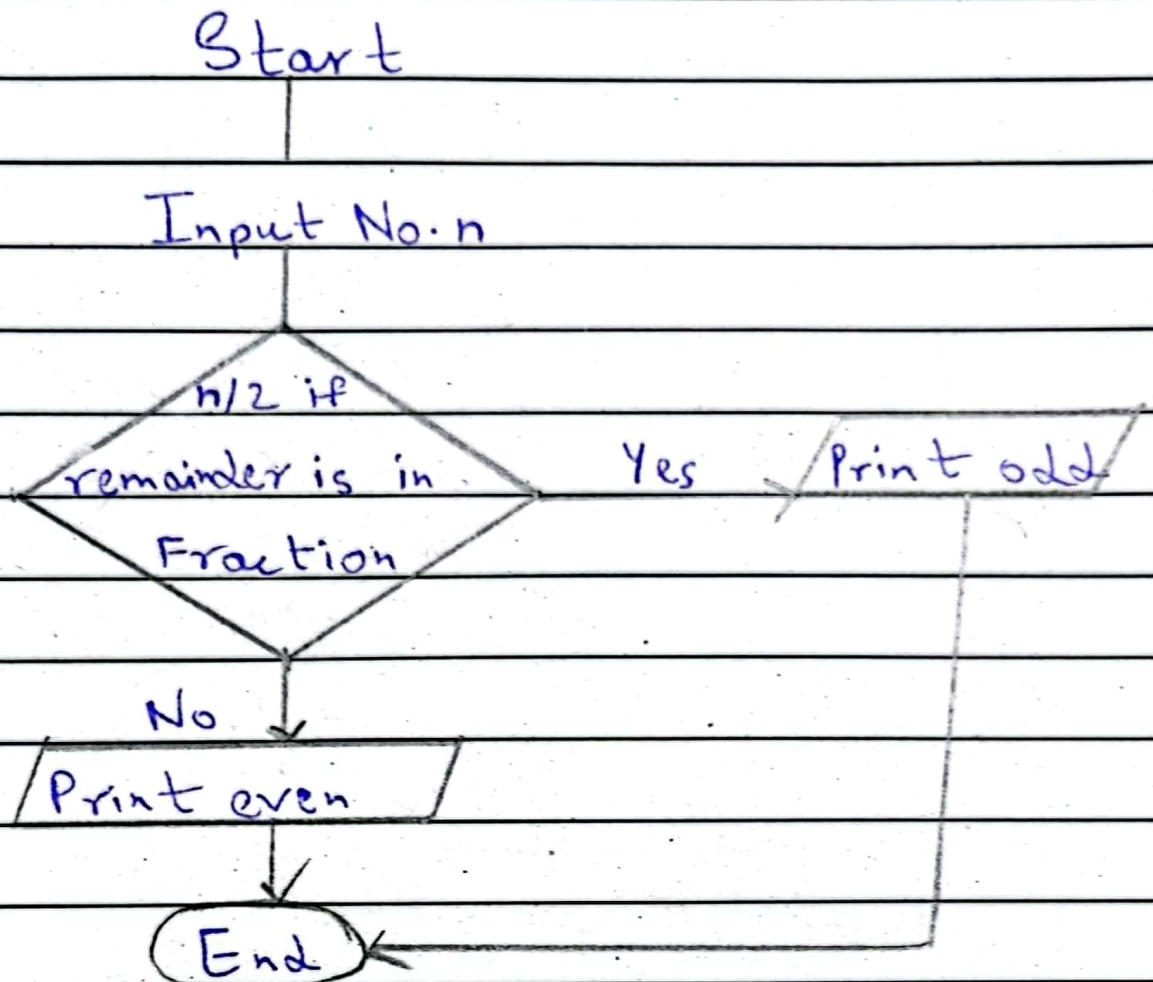 Start
Input No. n
n/2 if
remainder is in
Fraction
Yes
Print odd
No
Print even
End